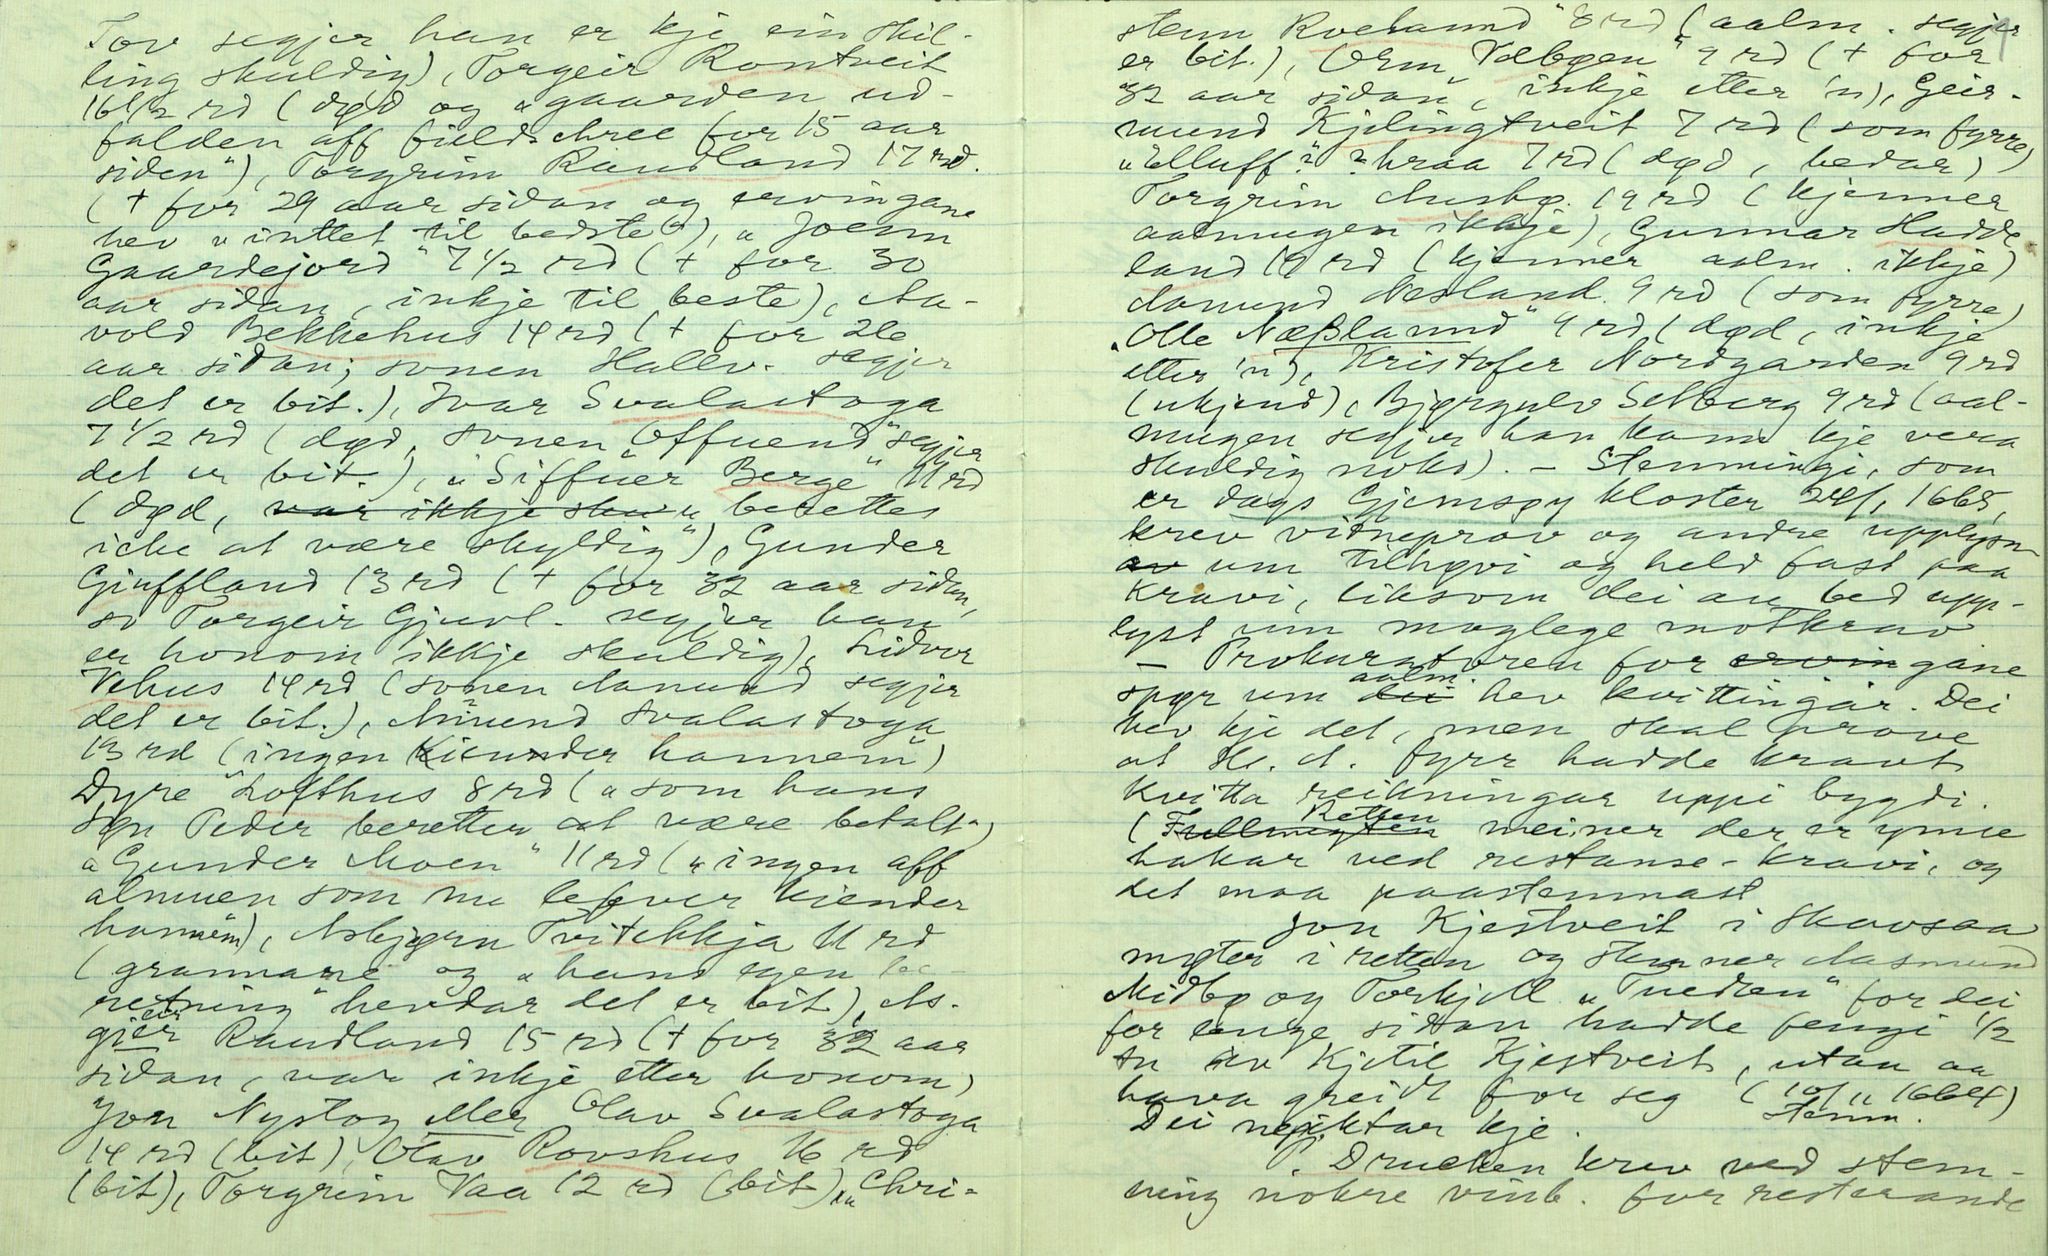 Tov segjer han er kje ein skil-
ling skuldig), Torgeir Rontveit
16 1/2 rd (død og "gaarden ud-
falden aff fieldschree for 15 aar
siden"), Torgrim Raudland 17 rd.
(+ for 29 aar sidan og ervingane
hev "inttet til bedste"), "Joenn
Gaardejord" 7 1/2 rd (+ for 30
aar sidan, inkje til beste), Aa-
vold Bekkehus 14 rd (+ for 26
aar sidan; sonen Hallv. segjer
det er bit.), Ivar Svalastoga
7 1/2 rd (død, sonen "Offuend" segjer
det er bit.), "Siffuer Berge" 11 rd
(død, var ikkje sku "berettes
iche at være skyldig"), Gunder
Giuffland 13 rd (+ for 32 aar sidan,
so Torgeir Gjuvl. segjer han
er honom ikkje skuldig), Lidvor
Vehus 14 rd (sonen Aamund segjer
det er bit.), Amund Svalastoga
13 rd (ingen kiender hannem")
Dyre Lofthus 8 rd ("som hans
søn Peder beretter at være betalt")
"Gunder Moen" 11 rd ("ingen aff
almuen som nu lefver kiender
hannem"), Asbjørn Tvitekkja 11 rd
(grannane og "hans egen be
retning" hevdar det er bit), As-
gjeir Raudland 15 rd (+ for 32 aar
sidan, var inkje etter honom)
Jon Nystog eller Olav Svalastoga
14 rd (bit), Olav Rovshus 16 rd
(bit), Torgrim Vaa 12 rd (bit), "Chri-
stenn Roeland" 8 rd (aalm. segjer
er bit.), Orm Velbøen" 9 rd (+ for
32 aar sidan, inkje etter 'n), Geir-
mund Kjelingtveit 7 rd (som fyrre)
"Elluff ? ? kraa 7 rd (død, bedar)
Torgrim Husbø. 19 rd (kjenner
aalmugen ikkje), Gunnar Hadde
land 19 rd (kjenner aalm. ikkje)
Aamund Nesland 9 rd (som fyrre)
"Olle Næβlannd" 9 rd (død, inkje
etter 'n), Kristofer Nordgarden 9 rd
(ukjend), Bjørgulv Selberg 9 rd (aal-
mugen segjer han kann kje vera
skuldig noko). - Stemningi, som
er dags Gjemsøy kloster 24/1 1665,
krev vitneprov og andre upplysn
av um tilhøvi og held fast paa
kravi, liksom dei au bed upp-
lyst um moglege motkrav.
- Prokuratoren for ervingane
spør um dei aalm. hev kvittingar. Dei
hev kje det, men skal prova
at H. A. fyrr hadde kravt
kvitta reikningar uppi bygdi.
(Fullmegten Retten meiner der er ymse
hakar ved restanse-kravi, og
det maa paastemnast
Jon Kjestveit i Skavsaa
møter i retten og stemner Aasmund
Midbø og Torkjell "Tuedten" for dei
for lenge sidan hadde fengi 1/2
tn av Kjetil Kjestveit, utan aa
hava greidt for seg (10/11 1664)
Dei neiktar kje. Stemn.
P. Drucken krev ved stem-
ning nokre vinb. for resterande